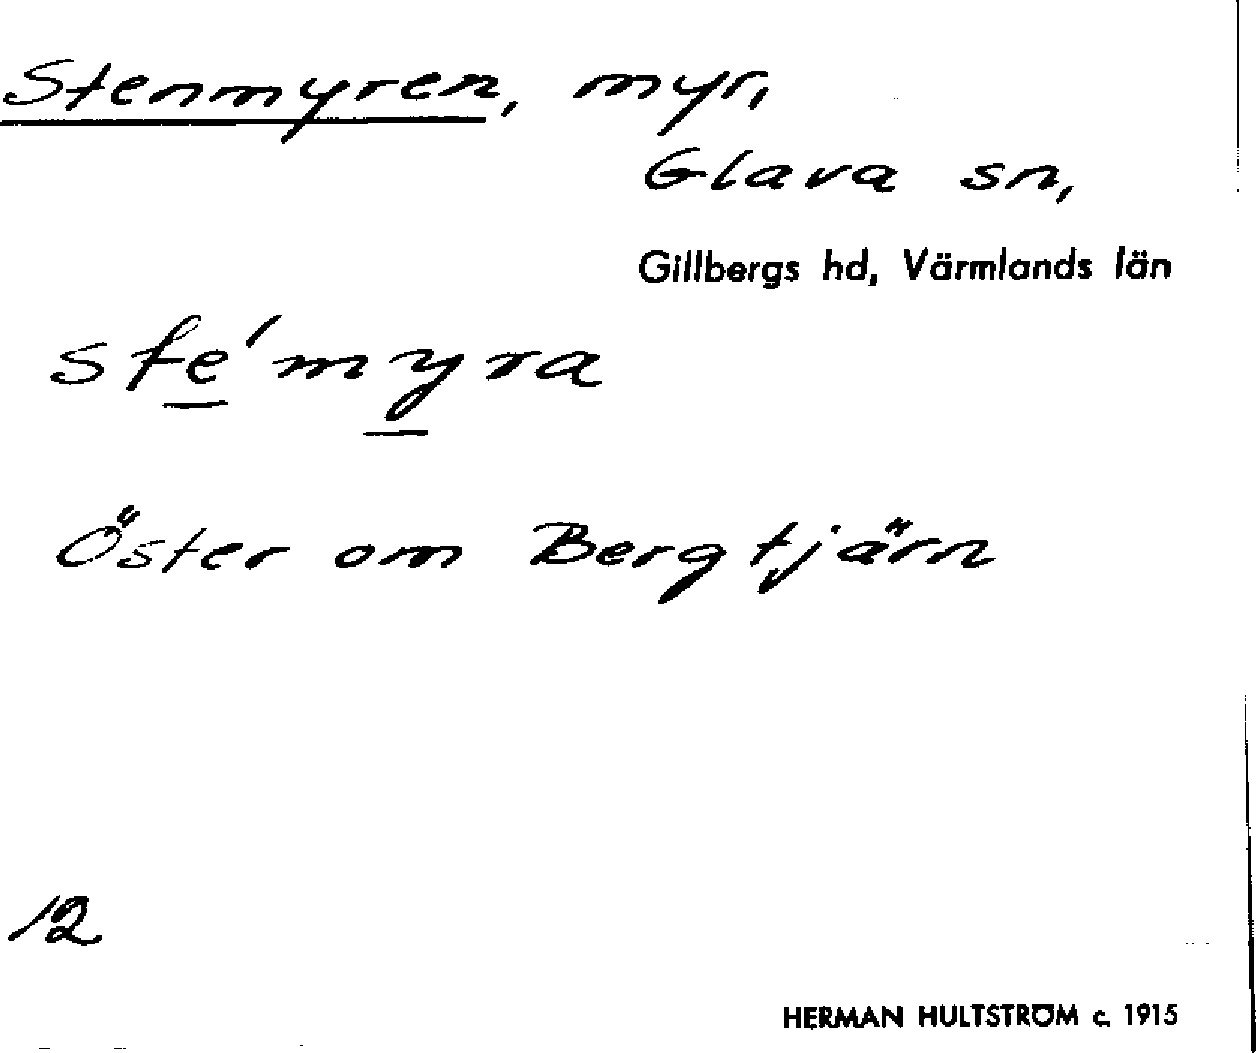 Stenmyren, myr,
Glava sn,
Gillbergs hd, Värmlands län
ste'myra
Öster om Bergtjärn
12
HERMAN HULTSTRÖM c. 1915